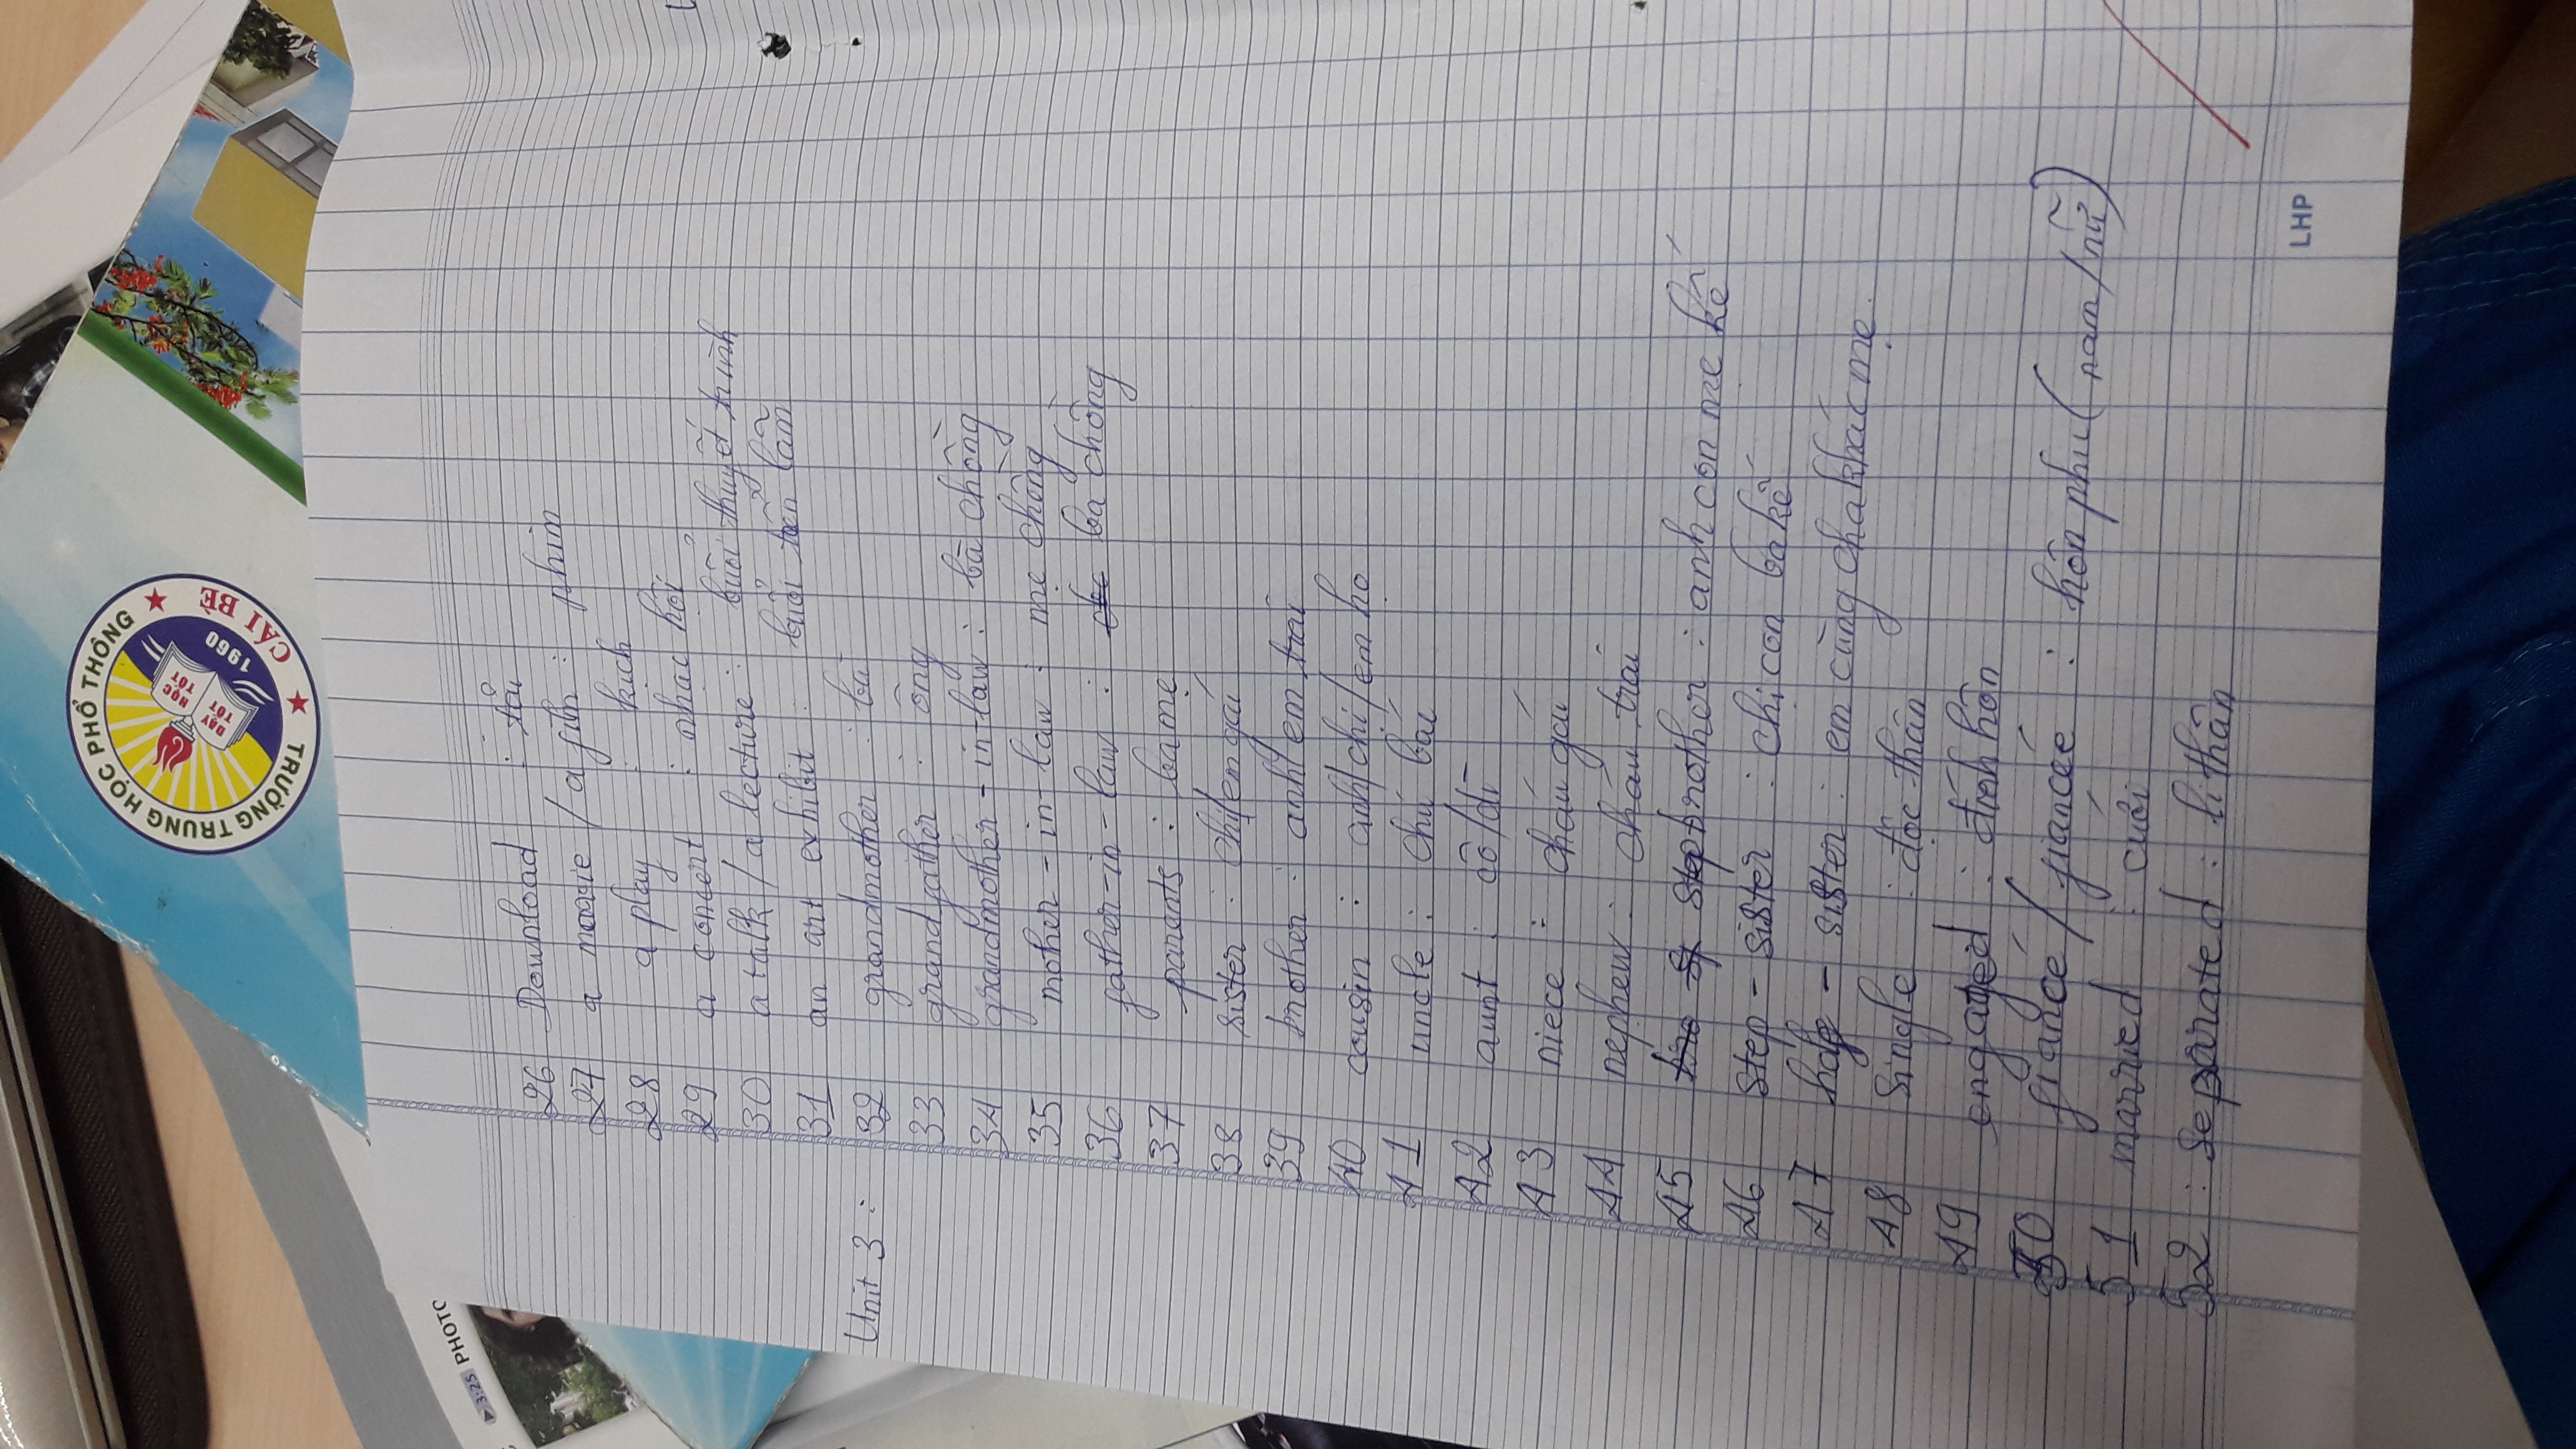 TRƯỜNG TRUNG HỌC PHỔ THÔNG
CÁI BÈ
DẠY TỐT
HỌC TỐT
1960
3:25 PHOTO
26 Download : tải
27 a movie / a film : phim
28 a play : kịch
29 a concert : nhạc hội
30 a talk / a lecture : buổi thuyết trình
31 an art exhibit : buổi triển lãm
Unit 3 : 32 grandmother : bà
33 grandfather : ông
34 grandmother - in - law : bà chồng
35 moher - in - law : mẹ chồng
36 father - in - law : ba chồng
37 parents : ba mẹ
38 sister : chị/em gái
39 brother : anh/em trai
40 cousin : anh/chị/em họ
41 uncle : chú bác
42 aunt : cô/dì
43 niece : cháu gái
44 nephew : cháu trai
45 stepbrother : anh con mẹ kế
46 step - sister : chị con ba kế
47 half - sister : em cùng cha khác mẹ.
48 single : độc thân
49 engaged : đính hôn
50 fiancé / fiancée : hôn phu (nam/nữ)
51 married : cưới
52 : separated : li thân
LHP